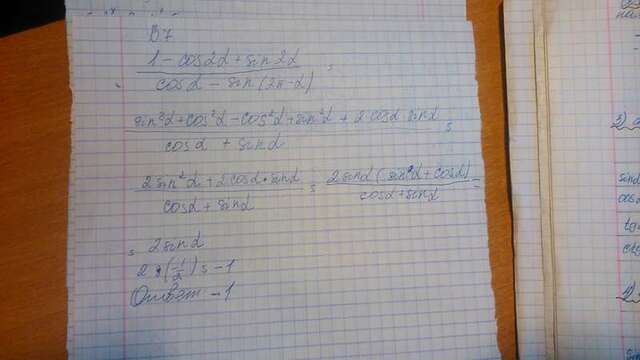 В7
1 - cos2α + sin2α / cosα - sin(2π-α) =
sin²α + cos²α - cos²α + sin²α + 2cosα sinα / cosα + sinα =
2sin²α + 2cosα · sinα / cosα + sinα = 2sinα (sinα + cosα) / cosα + sinα =
= 2sinα
2 · (-1/2) = -1
Ответ -1
2)
sinα
cosα
tg
ctg